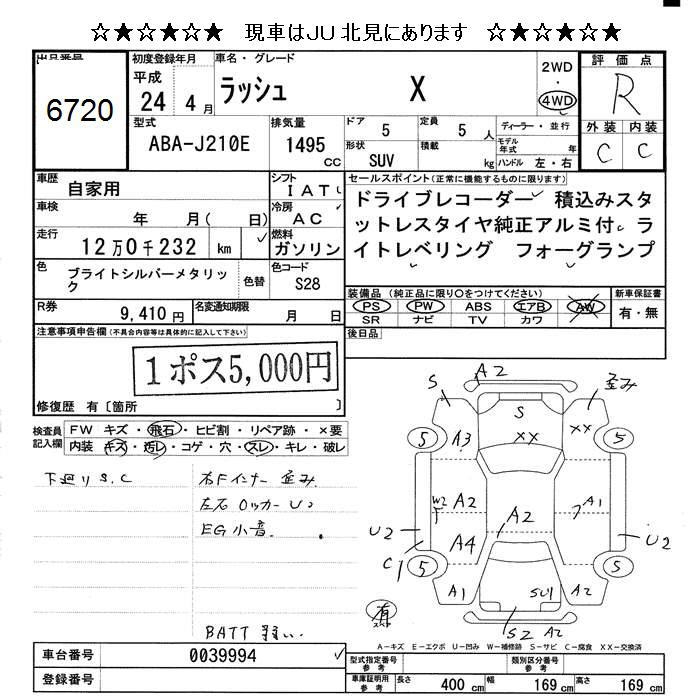 ☆★☆★☆★☆ 現車はJU北見にあります ☆★☆★☆★☆
出品番号
6720
初度登録年月
平成
24 4月
車名・グレード
ラッシュ X
2WD
・
4WD
評価点
R
型式
ABA-J210E
排気量
1495
CC
ドア
5
定員
5 人
ディーラー・並行
形状
SUV
積載
kg
モデル年式 年
ハンドル 左・右
外装 内装
C C
車歴
自家用
シフト
IAT
車検
年 月( 日)
冷房
AC
走行
12万0千232 km
燃料
ガソリン
色
ブライトシルバーメタリック
色替
色コード
S28
R券
9,410円
名変通知期限
月 日
セールスポイント(正常に機能するものに限ります)
ドライブレコーダー 積込みスタ
ットレスタイヤ純正アルミ付 ラ
イトレベリング フォーグランプ
装備品 (純正品に限り○をつけてください)
PS PW ABS エアB AW
SR ナビ TV カワ
新車保証書
有・無
後日品
注意事項申告欄(不具合内容等は具体的に記入して下さい)
1ポス5,000円
修復歴 有〔箇所 〕
検査員記入欄
FW キズ・飛石・ヒビ割・リペア跡・×要
内装 キズ・汚レ・コゲ・穴・スレ・キレ・破レ
下廻りS.C
右Fインナー 歪み
左右ロッカーU2
EG小音
BATT 弱い
A2
S
歪み
S
XX
XX
5
A3
5
W2
A2
A2
A1
U2
A4
U2
C1
5
5
A1
SU1
A2
有
S2 A2
A-キズ E-エクボ U-凹み W-補修跡 S-サビ C-腐食 XX-交換済
車台番号
0039994
登録番号
型式指定番号
参考
類別区分番号
参考
車庫証明用
参考
長さ 400 cm 幅 169 cm 高さ 169 cm